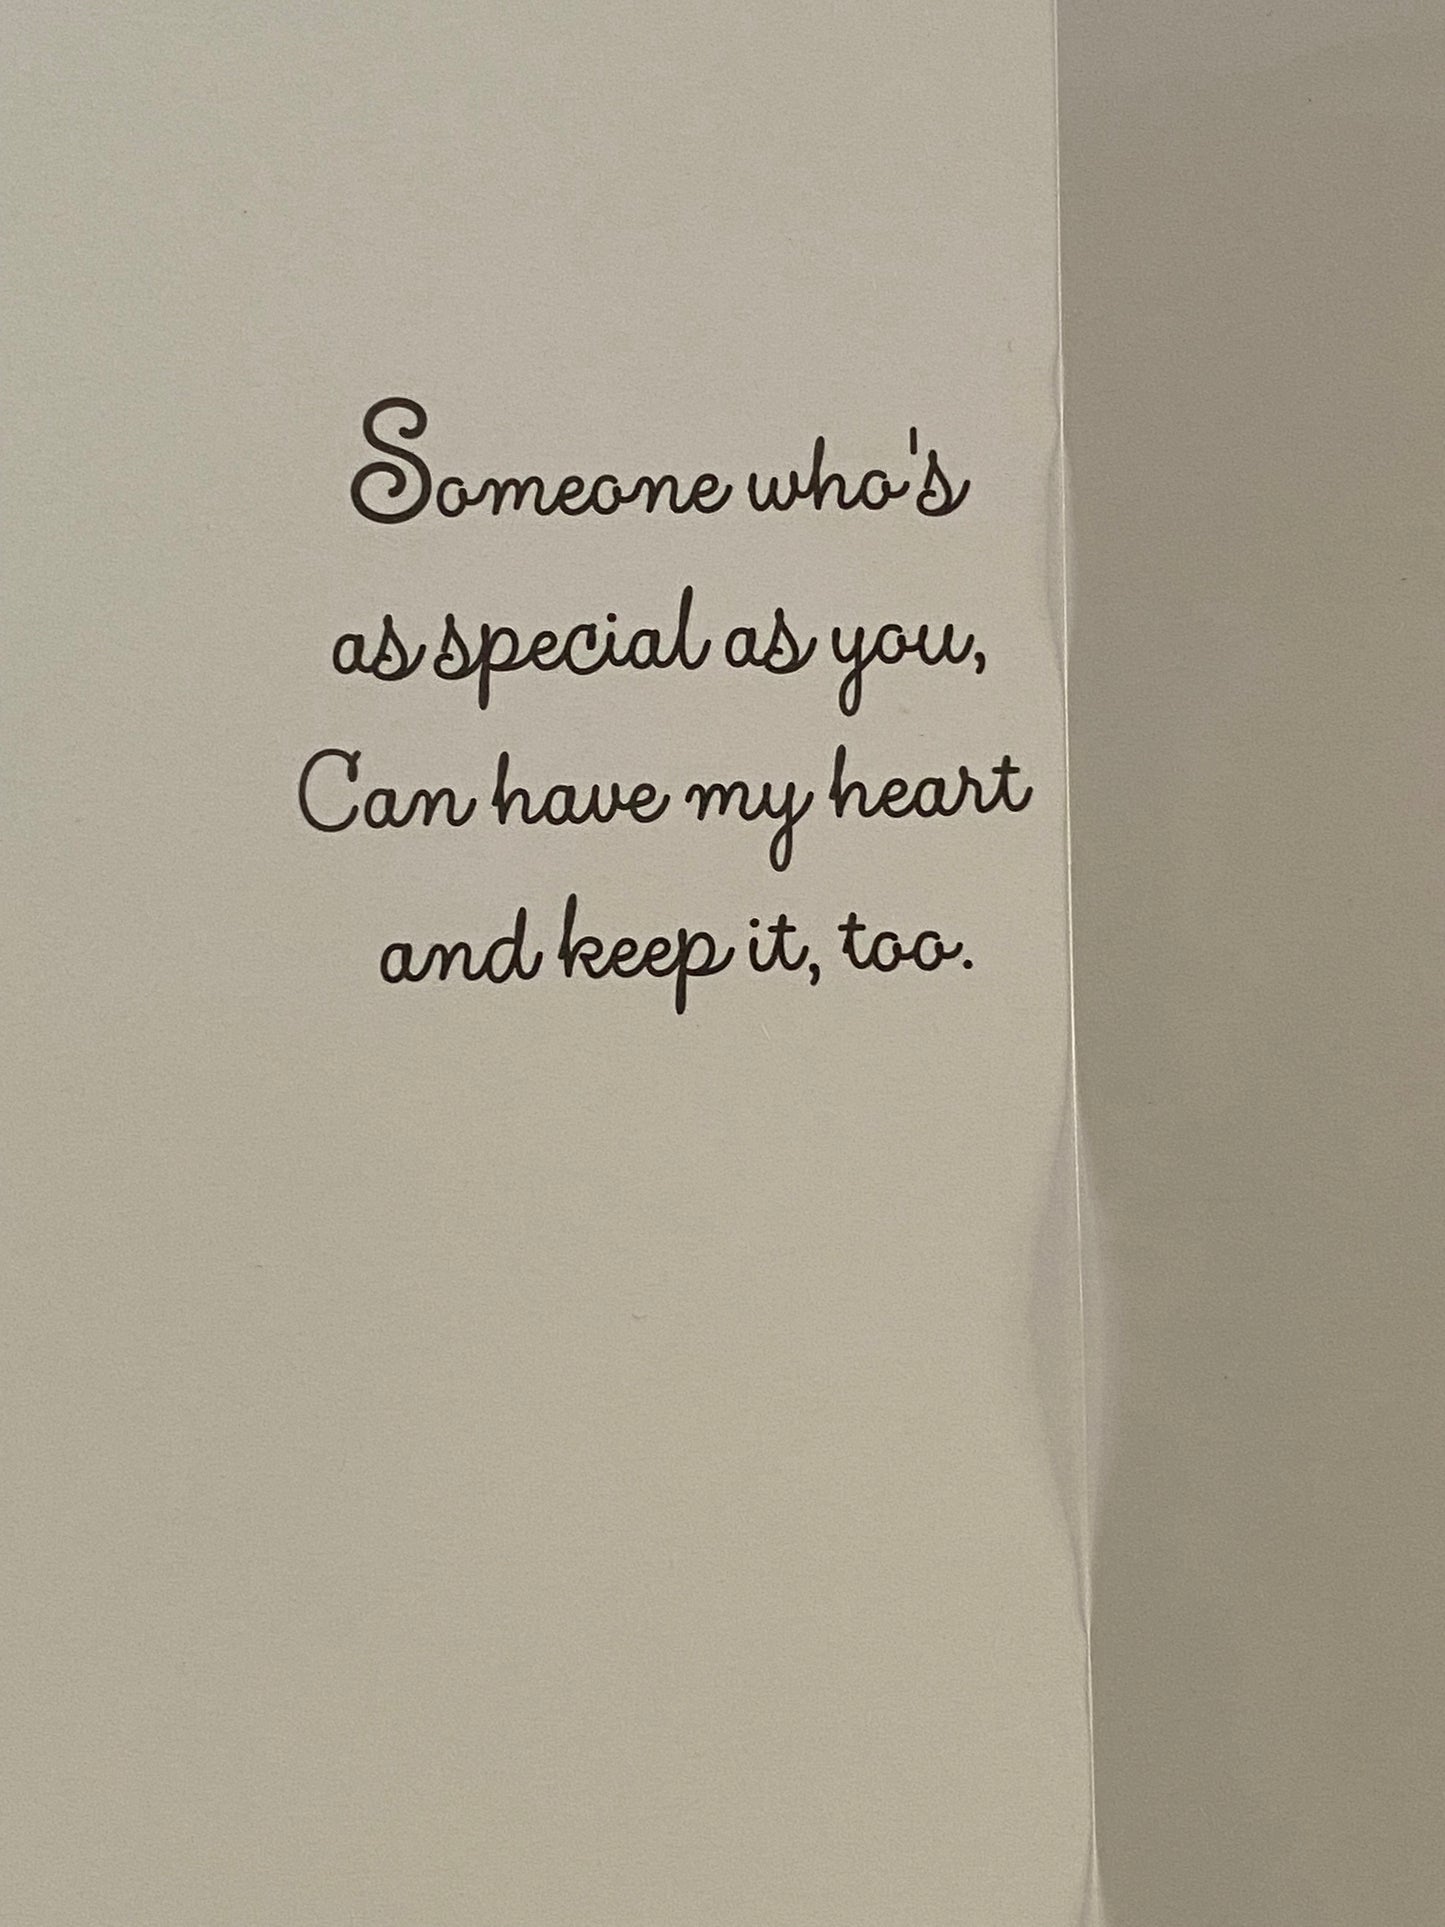 Someone who's
as special as you,
Can have my heart
and keep it, too.